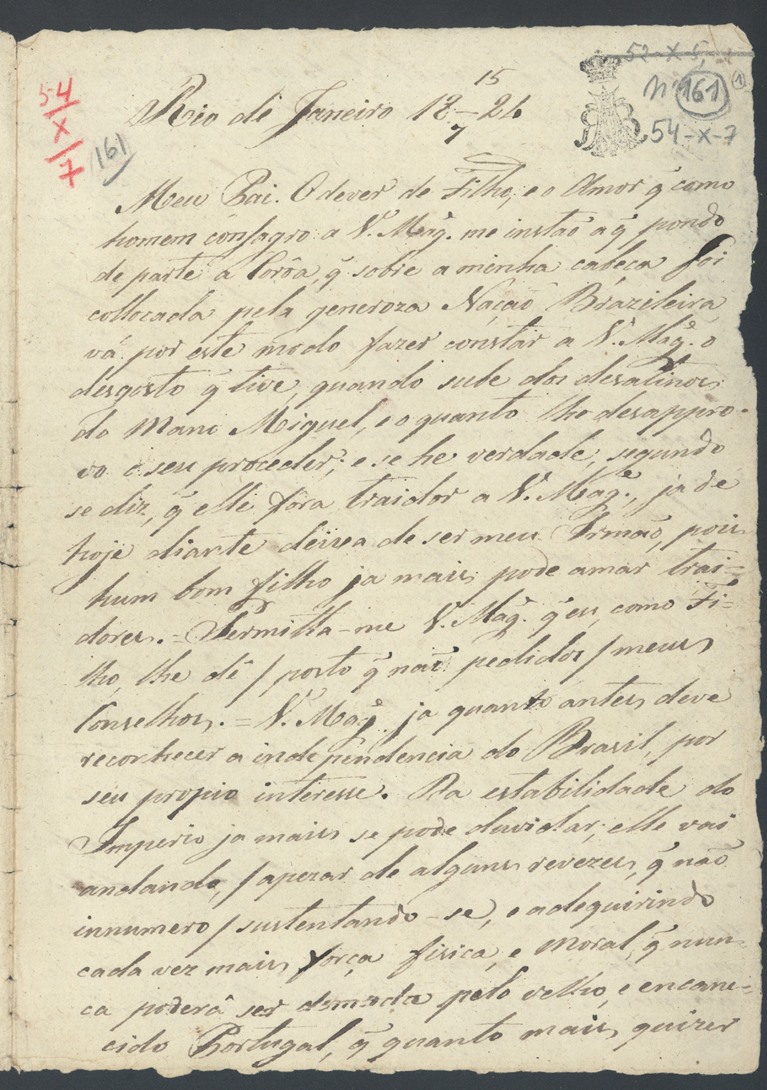 52-X-5
54/X/7
161
Nº 161
1
54-X-7
Rio de Janeiro 18 15/7 24
Meu Pai. O dever de Filho, e o Amor q̃ como
homem consagro a V. Mag.e me instão a q̃ pondo
de parte a Corôa, q̃ sobre a minha cabeça foi
collocada pela generoza Nação Brazileira
vá por este modo fazer constar a V. Mag.e o
desgosto q̃ tive, quando sube dos desatinos
do Mano Miguel, e o quanto lhe desappro-
vo o seu proceder; e se he verdade, segundo
se diz, q̃ elle fora traidor a V. Mag.e, ja de
hoje diante deixa de ser meu Irmão, pois
hum bom filho ja mais pode amar trai=
dores. = Permitta-me V. Mag.e q̃ eu, como Fi=
lho, lhe dê / posto q̃ não pedidos / meus
Conselhos. = V. Mag.e ja quanto antes deve
reconhecer a independencia do Brasil, por
seu propio interesse. Da estabilidade do
Imperio ja mais se pode duvidar; elle vai
andando, / apezar de alguns revezes, q̃ não
innumero / sustentando-se, e adequirindo
cada vez mais força fisica, e moral, q̃ nun=
ca poderá ser pelo velho, e encane=
cido Portugal, q̃ quanto mais quizer